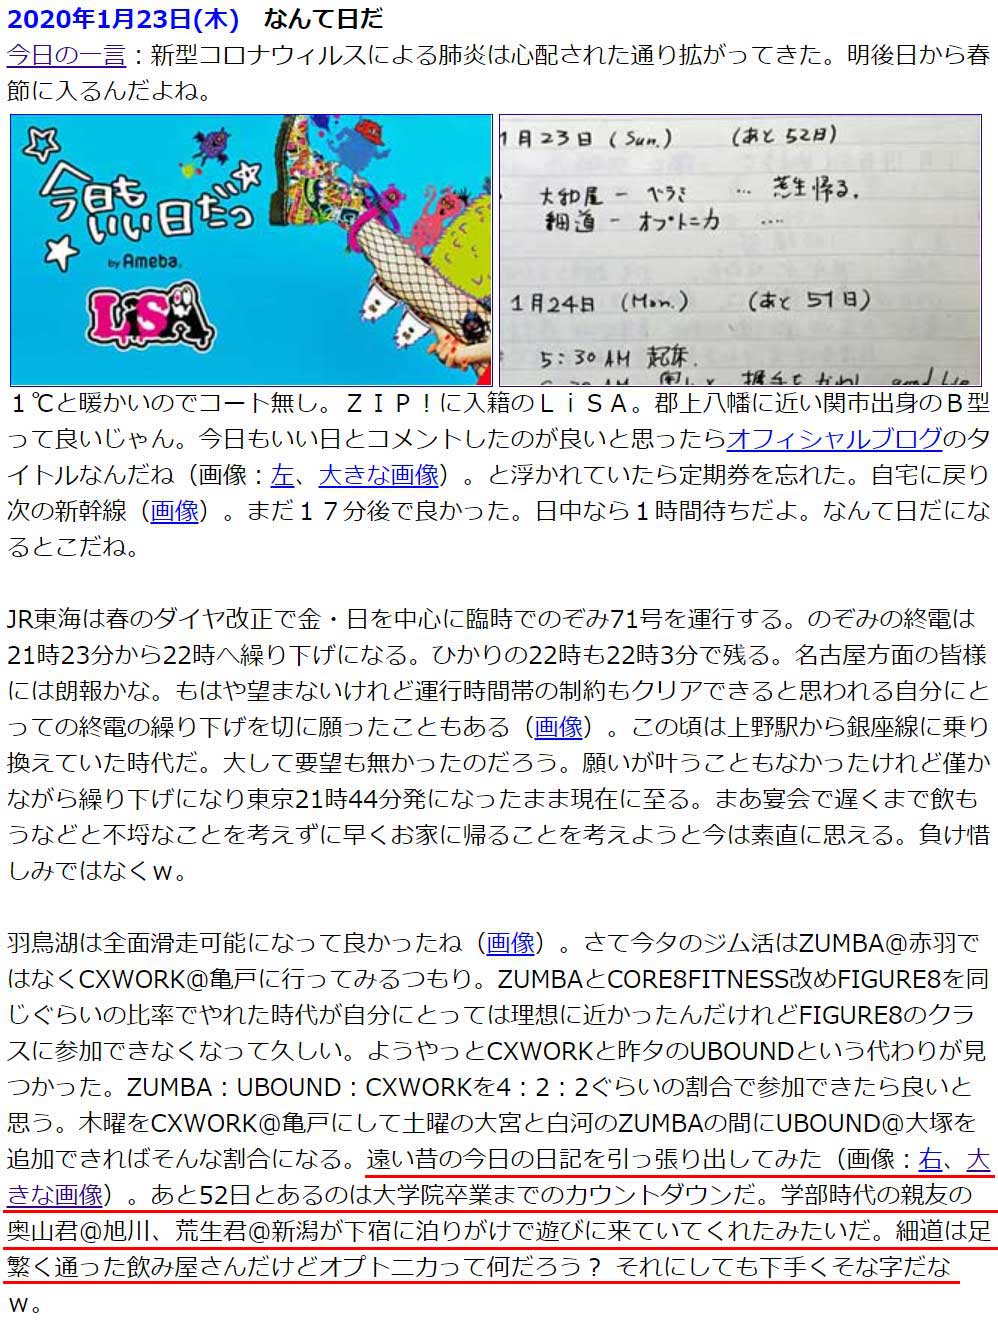 2020年1月23日(木)　なんて日だ
今日の一言：新型コロナウィルスによる肺炎は心配された通り拡がってきた。明後日から春
節に入るんだよね。
今日も
いい日だっ
by Ameba.
LiSA
1月23日 (Sun.) (あと52日)
大和屋 ー ベラミ … 荒生帰る.
細道 ー オプトニカ ….
1月24日 (Mon.) (あと51日)
5:30 AM 起床.
握手をかわし good bye
１℃と暖かいのでコート無し。ＺＩＰ！に入籍のＬｉＳＡ。郡上八幡に近い関市出身のＢ型
って良いじゃん。今日もいい日とコメントしたのが良いと思ったらオフィシャルブログのタ
イトルなんだね（画像：左、大きな画像）。と浮かれていたら定期券を忘れた。自宅に戻り
次の新幹線（画像）。まだ１７分後で良かった。日中なら１時間待ちだよ。なんて日だにな
るとこだね。
JR東海は春のダイヤ改正で金・日を中心に臨時でのぞみ71号を運行する。のぞみの終電は
21時23分から22時へ繰り下げになる。ひかりの22時も22時3分で残る。名古屋方面の皆様
には朗報かな。もはや望まないけれど運行時間帯の制約もクリアできると思われる自分にと
っての終電の繰り下げを切に願ったこともある（画像）。この頃は上野駅から銀座線に乗り
換えていた時代だ。大して要望も無かったのだろう。願いが叶うこともなかったけれど僅か
ながら繰り下げになり東京21時44分発になったまま現在に至る。まあ宴会で遅くまで飲も
うなどと不埒なことを考えずに早くお家に帰ることを考えようと今は素直に思える。負け惜
しみではなくｗ。
羽鳥湖は全面滑走可能になって良かったね（画像）。さて今夕のジム活はZUMBA@赤羽で
はなくCXWORK@亀戸に行ってみるつもり。ZUMBAとCORE8FITNESS改めFIGURE8を同
じぐらいの比率でやれた時代が自分にとっては理想に近かったんだけれどFIGURE8のクラ
スに参加できなくなって久しい。ようやっとCXWORKと昨夕のUBOUNDという代わりが見
つかった。ZUMBA：UBOUND：CXWORKを4：2：2ぐらいの割合で参加できたら良いと
思う。木曜をCXWORK@亀戸にして土曜の大宮と白河のZUMBAの間にUBOUND@大塚を
追加できればそんな割合になる。遠い昔の今日の日記を引っ張り出してみた（画像：右、大
きな画像）。あと52日とあるのは大学院卒業までのカウントダウンだ。学部時代の親友の
奥山君@旭川、荒生君@新潟が下宿に泊りがけで遊びに来ていてくれたみたいだ。細道は足
繁く通った飲み屋さんだけどオプトニカって何だろう？ それにしても下手くそな字だな
ｗ。